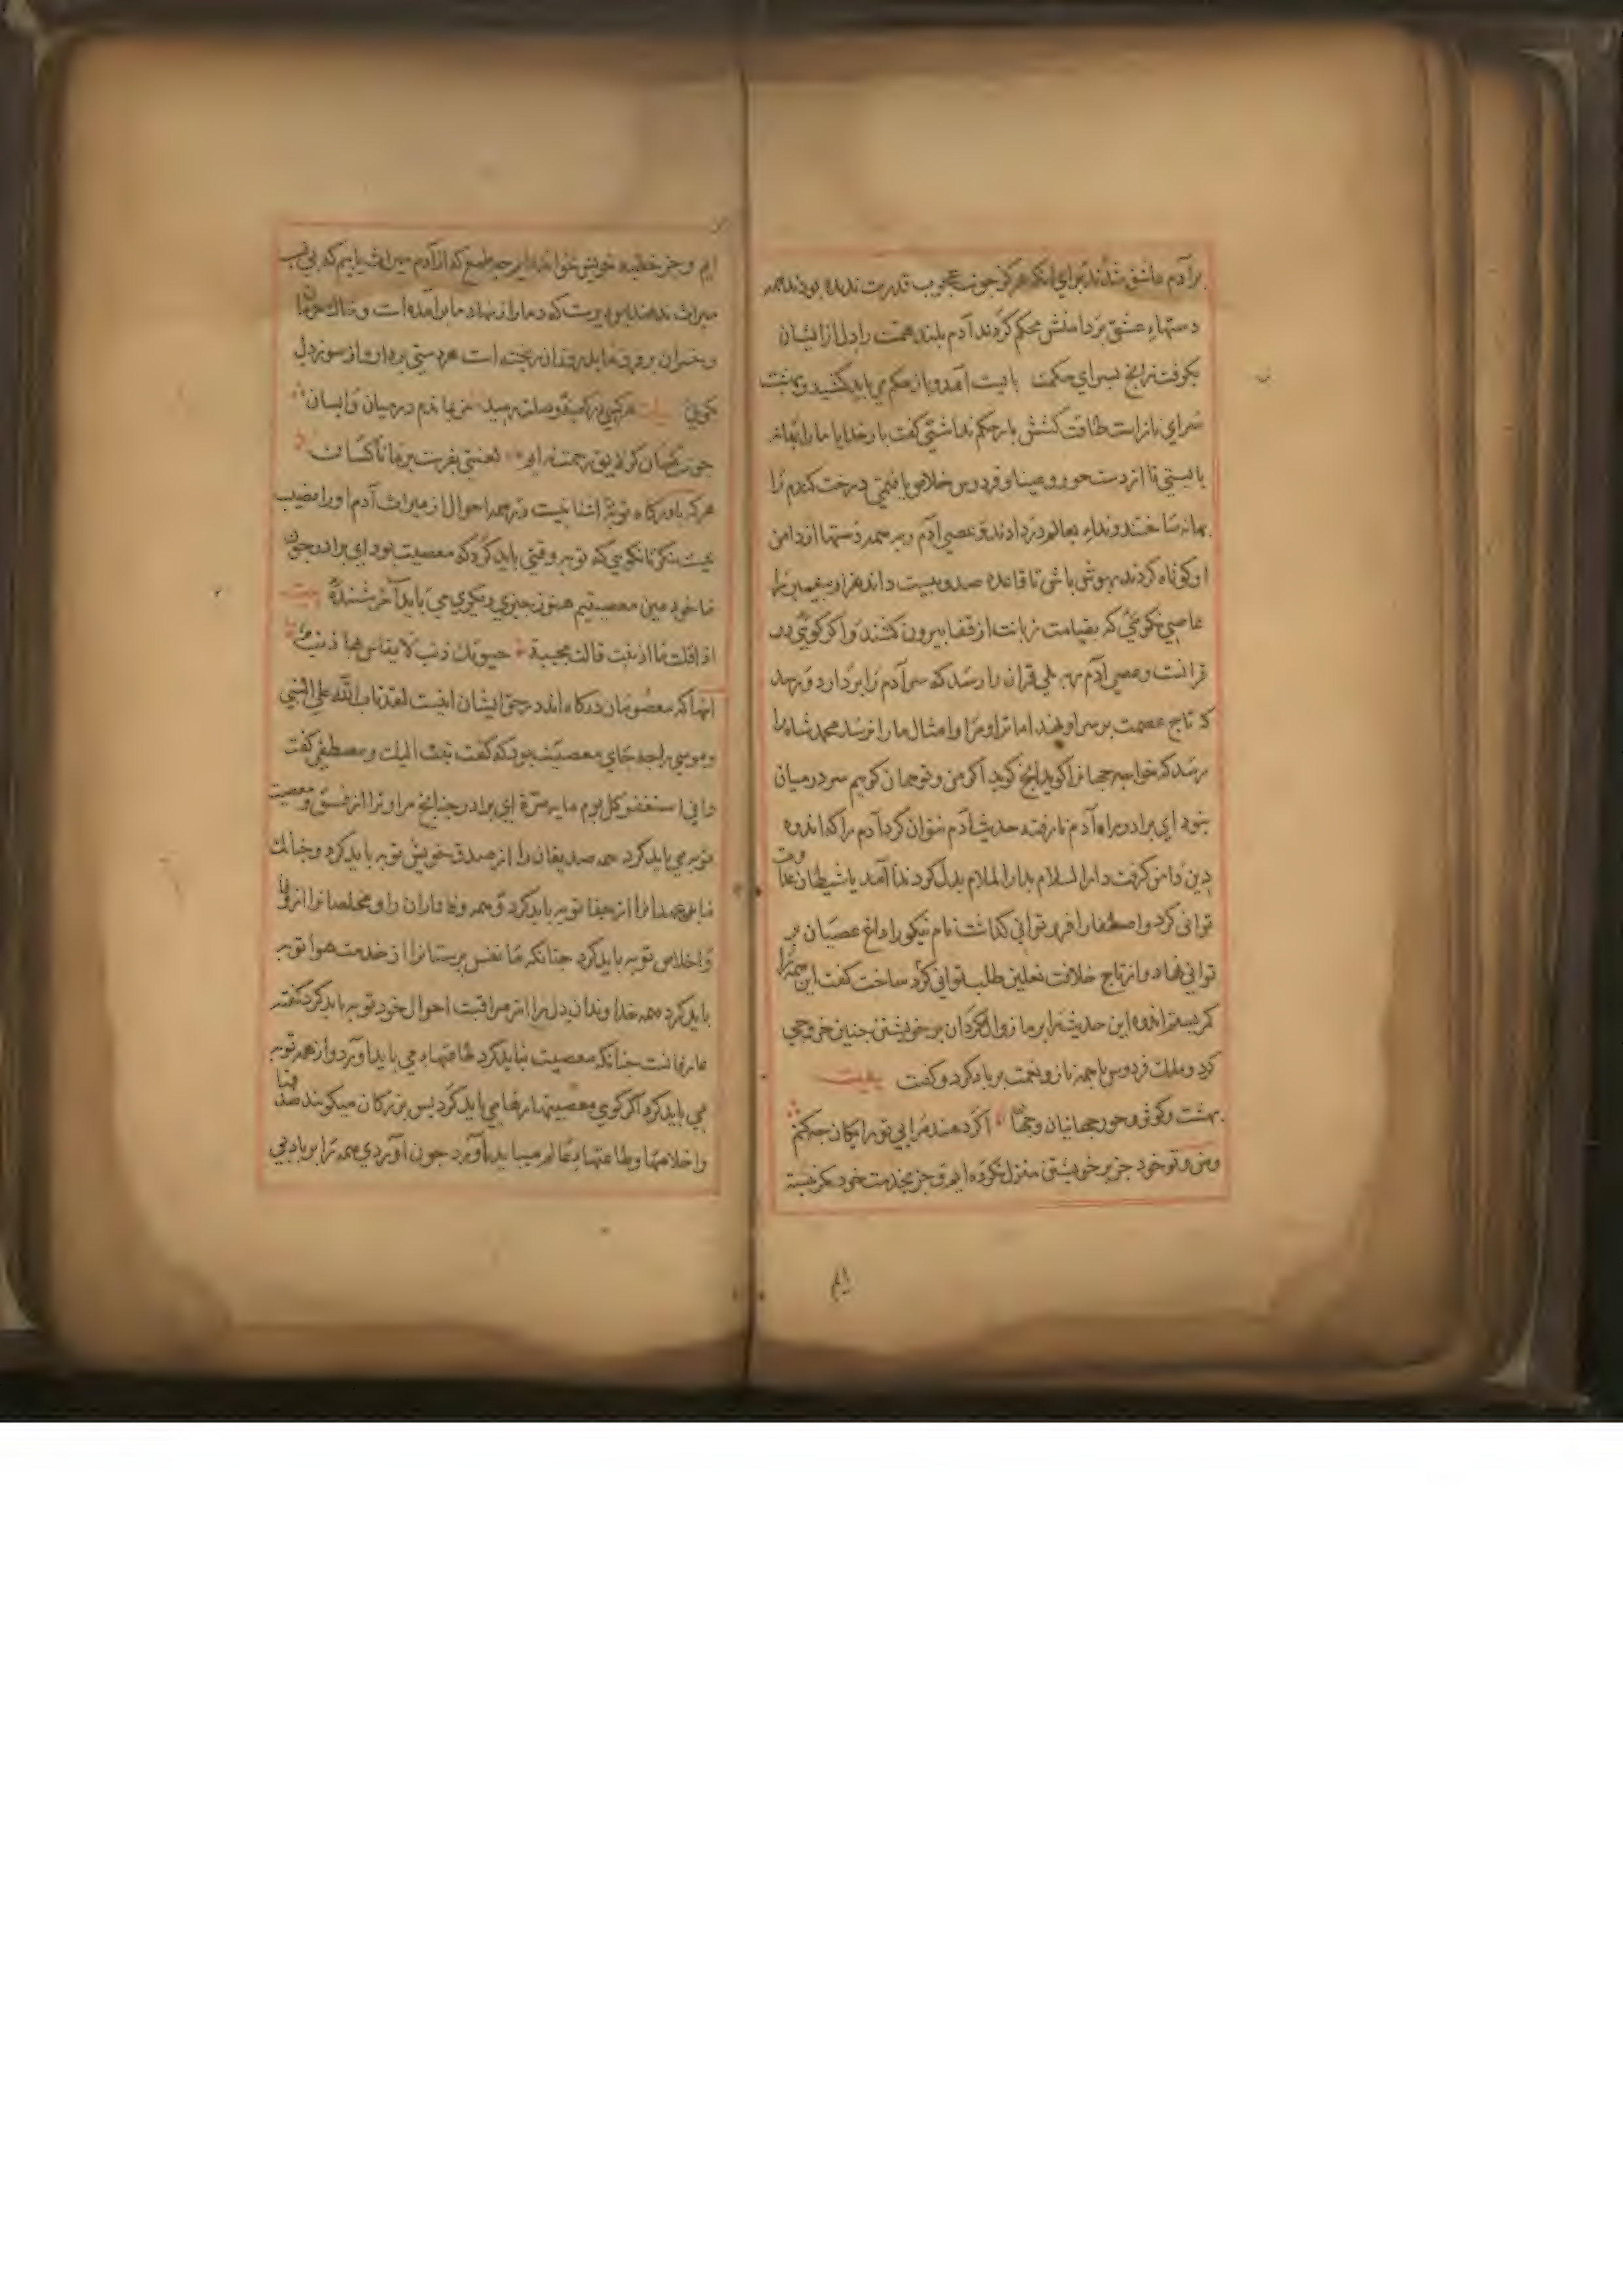 برآدم عاشق شدند برای انکه هرکز جون عجوب قدرت ندیده بودند همه
دستهاء عشق بردامنش محکم کردند آدم بلند همت را دل از ایشان
بکرفت نرانج بسرای حکمت بایست آمد و بار حکم می باید کشید و بهشت
سرای نازاست طاقت کشش بار حکم نداشتی کفت بارخدایا مارا بهانه
بایستی تا از دست حور و عینا و فردوس خلاص یافتمی درخت کندم را
بهانه ساختند و نداء بعالم در دادند و عصی آدم ربه همه دستها از دامن
او کوتاه کردند بهوش باشی تا قاعده صد و بیست و اند هزار پیغمبر را
عاصی نکوئی که بقیامت زبانت از قفا بیرون کشند و اکر کوئی در
قرانست و عصی آدم ربه بلی قران را رسد که سر آدم را بردارد و نهد
که تاج عصمت بر سر او نهند اما ترا و مرا و امثال ما را نرسد محمد شاه را
رسد که خواجه جهانرا کوید انج کوید اکر من و تو جهان کویم سر در میان
بنود ای برادر براه آدم نارفته حدیث آدم نتوان کرد آدم را که اندوه
دین دامن کرفت دار السلام بدار الملام بدل کرد ندا آمد یا شیطان عداوت
توانی کرد و اصطفا را فرو توانی کذاشت نام نیکو را داغ عصیان بر
توانی نهاد و از تاج خلافت نعلین طلب توانی کرد ساخت کفت این همه را
کمر بستم اندوه این حدیث را بر ما زوال مکردان بر خویشتن جنین خروجی
کرد و ملک فردوس با جمه ناز و نعمت برباد کرد و کفت بیت
بهشت و کوثر و حور جهانیان و جهان اکر دهند مرا بی تو رایکان جکنم
و من و تو خود جز بر خویشتن منزل نکرده ایم و جز بخدمت خود کمر نبسته
ایم
ایم و جز خطبه خویش نخوانده ایم جه طمع که از آدم میراث یابیم که بی نسب
میراث ندهند بلی بویست که دمار از نهاد ما برآمده است و خاک حرمان
و خسران بر فرق ما بیخته است هر دستی بردار و از سوز دل
کوی بیت هرکسی در کعبه وصلت رسید من بماندم در میان وایسان
جون سکان کر لایق رحمت نه ایم لعنتی بفرست بر ما ناکسان
هرکه با درکاه توبه اش آشنا نیست در همه احوال از میراث آدم او را نصیب
نیست نکر تا نکویی که توبه وقتی باید کرد که معصیت بود ای برادر در حق
ما خود عین معصیتیم هنوز جیزی دیکری می باید آخر شنیدۀ بیت
اذا قلت ما اذنبت قالت مجیبة حیوتک ذنب لا یقاس بها ذنب
انها که معصومان درکاه اند در حق ایشان اینست لقد تاب الله علی النبی
و موسی را جه جای معصیت بود که کفت تبت الیک و مصطفی کفت
و انی استغفر کل یوم مایه مرّة ای برادر جنانج مرا و ترا از فسق و معصیت
توبه می باید کرد همه صدیقان را از صدق خویش توبه باید کرد و جنانک
ما را از جفا توبه باید کرد و همه وفاداران را و مخلصانرا از وفا
و اخلاص توبه باید کرد جنانکه ما نفس پرستانرا از خدمت هوا توبه
باید کرد همه خداوندان دل را از مراقبت احوال خود توبه باید کرد کفته
عارفانست جنانکه معصیت نباید کرد طاعتها می باید آورد و از همه توبه
می باید کرد اکر کوی معصیتها رها می باید کرد پس بزرکان میکویند صدقها
و اخلاصها و طاعتها بعالم میباید آورد جون آوردی همه را بر باد بی